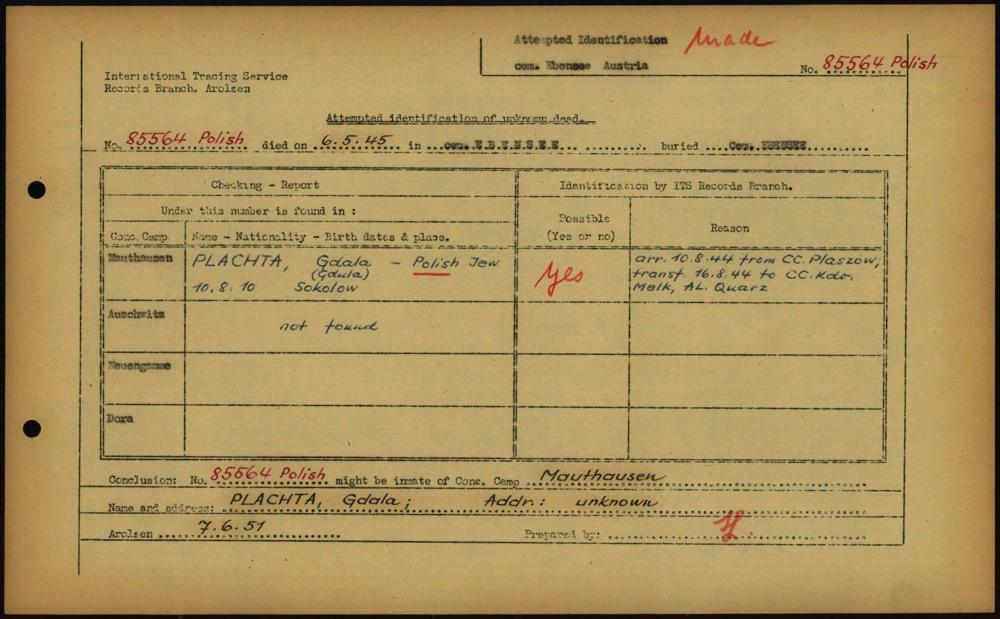 Attempted Identification made
cem. Ebensee Austria
No. 85564 Polish
International Tracing Service
Records Branch, Arolsen
Attempted identification of unknown dead.
No. 85564 Polish died on 6.5.45 in cem. E.B.E.N.S.E.E. buried Cem. EBENSEE
Checking - Report
Identification by ITS Records Branch.
Under this number is found in :
Possible
(Yes or no)
Reason
Conc. Camp
Name - Nationality - Birth dates & place.
Mauthausen
PLACHTA, Gdala - Polish Jew
(Gdula)
10.8.10 Sokolow
yes
arr. 10.8.44 from CC. Plaszow;
transf. 16.8.44 to CC. Kdo.
Melk, AL. Quarz
Auschwitz
not found
Neuengamme
Dora
Conclusion: No. 85564 Polish might be inmate of Conc. Camp Mauthausen
Name and address: PLACHTA, Gdala; Addr.: unknown
Arolsen 7.6.51
Prepared by: